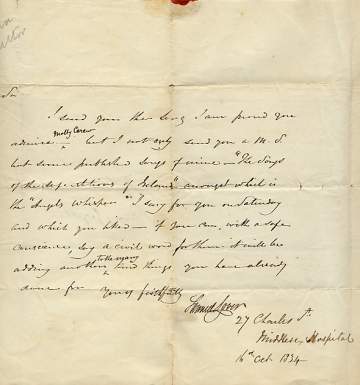 Sir
I send you the song I am proud you
admire Molly Carew but I not only send you a M.S.
but some published songs of mine – "The Songs
of the Superstitions of Ireland" amongst which is
the "Angels Whisper" I sung for you on Saturday
and which you liked – if you can, with a safe
conscience, say a civil word for them it will be
adding another to the many kind things you have already
done for Yours faithfully
Samuel Lover
27 Charles St.
Middlesex Hospital
16th Oct 1834